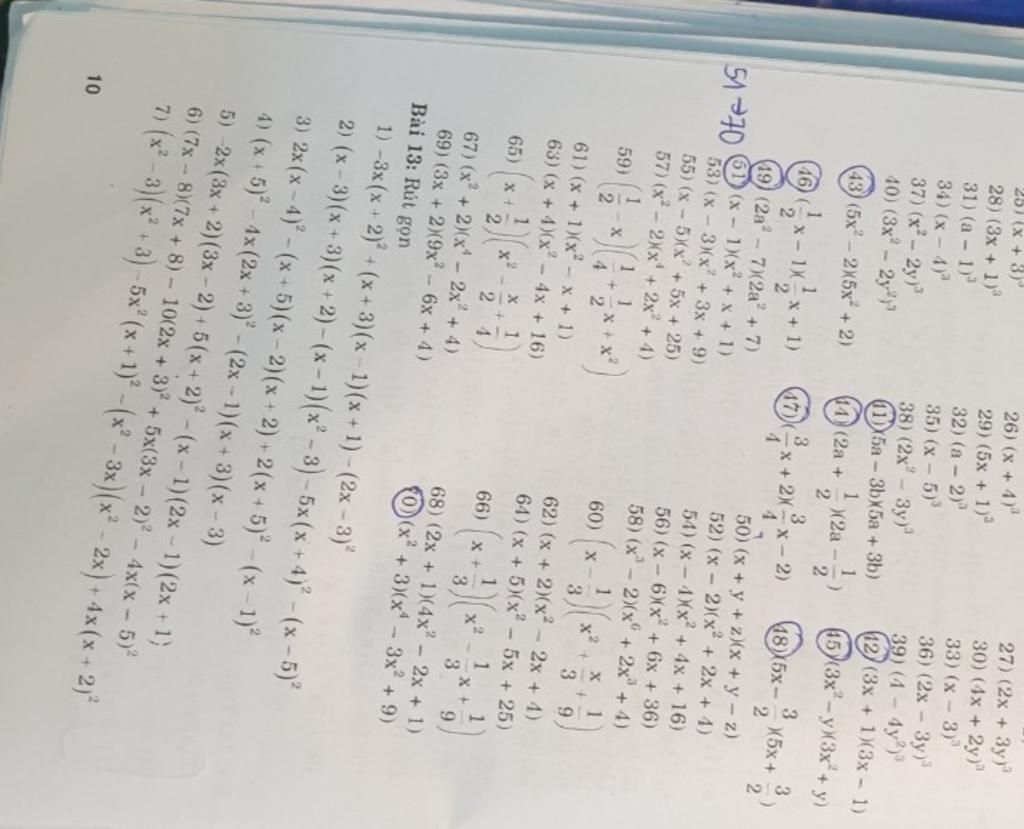 25) (x + 3)³
26) (x + 4)³ 27) (2x + 3y)³
28) (3x + 1)³ 29) (5x + 1)³ 30) (4x + 2y)³
31) (a − 1)³ 32) (a − 2)³ 33) (x − 3)³
34) (x − 4)³ 35) (x − 5)³ 36) (2x − 3y)³
37) (x² − 2y)³ 38) (2x² − 3y)³ 39) (4 − 4y²)³
40) (3x² − 2y²)³ 41) (5a − 3b)(5a + 3b) 42) (3x + 1)(3x − 1)
43) (5x² − 2)(5x² + 2) 44) (2a + 1/2)(2a − 1/2) 45) (3x² − y)(3x² + y)
46) (1/2x − 1)(1/2x + 1) 47) (3/4x + 2)(3/4x − 2) 48) (5x − 3/2)(5x + 3/2)
49) (2a² − 7)(2a² + 7) 50) (x + y + z)(x + y − z)
51→70
51) (x − 1)(x² + x + 1) 52) (x − 2)(x² + 2x + 4)
53) (x − 3)(x² + 3x + 9) 54) (x − 4)(x² + 4x + 16)
55) (x − 5)(x² + 5x + 25) 56) (x − 6)(x² + 6x + 36)
57) (x² − 2)(x⁴ + 2x² + 4) 58) (x³ − 2)(x⁶ + 2x³ + 4)
59) (1/2 − x)(1/4 + 1/2x + x²) 60) (x − 1/3)(x² + x/3 + 1/9)
61) (x + 1)(x² − x + 1) 62) (x + 2)(x² − 2x + 4)
63) (x + 4)(x² − 4x + 16) 64) (x + 5)(x² − 5x + 25)
65) (x + 1/2)(x² − x/2 + 1/4) 66) (x + 1/3)(x² − 1/3x + 1/9)
67) (x² + 2)(x⁴ − 2x² + 4) 68) (2x + 1)(4x² − 2x + 1)
69) (3x + 2)(9x² − 6x + 4) 70) (x² + 3)(x⁴ − 3x² + 9)
Bài 13: Rút gọn
1) −3x(x + 2)² + (x + 3)(x − 1)(x + 1) − (2x − 3)²
2) (x − 3)(x + 3)(x + 2) − (x − 1)(x² − 3) − 5x(x + 4)² − (x − 5)²
3) 2x(x − 4)² − (x + 5)(x − 2)(x + 2) + 2(x + 5)² − (x − 1)²
4) (x + 5)² − 4x(2x + 3)² − (2x − 1)(x + 3)(x − 3)
5) −2x(3x + 2)(3x − 2) + 5(x + 2)² − (x − 1)(2x − 1)(2x + 1)
6) (7x − 8)(7x + 8) − 10(2x + 3)² + 5x(3x − 2)² − 4x(x − 5)²
7) (x² − 3)(x² + 3) − 5x²(x + 1)² − (x² − 3x)(x² − 2x) + 4x(x + 2)²
10